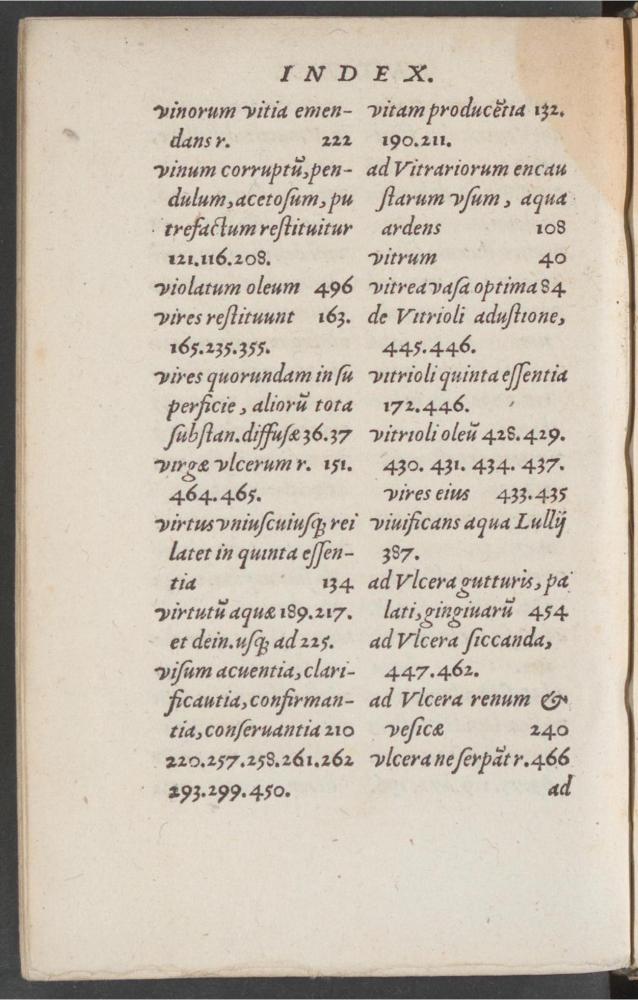 INDEX.
vinorum vitia emen-
dans r. 222
vinum corruptũ, pen-
dulum, acetoſum, pu
trefactum reſtituitur
121.116.208.
violatum oleum 496
vires reſtituunt 163.
165.235.355.
vires quorundam in ſu
perficie, aliorũ tota
ſubſtan. diffuſæ 36.37
virgæ vlcerum r. 151.
464.465.
virtus vniuſcuiuſq; rei
latet in quinta eſſen-
tia 134
virtutũ aquæ 189.217.
et dein. uſq; ad 225.
viſum acuentia, clari-
ficautia, confirman-
tia, conſeruantia 210
220.257.258.261.262
293.299.450.
vitam producẽtia 132.
190.211.
ad Vitrariorum encau
ſtarum vſum, aqua
ardens 108
vitrum 40
vitrea vaſa optima 84
de Vitrioli aduſtione,
445.446.
vitrioli quinta eſſentia
172.446.
vitrioli oleũ 428.429.
430. 431. 434. 437.
vires eius 433.435
viuificans aqua Lullij
387.
ad Vlcera gutturis, pa
lati, gingiuarũ 454
ad Vlcera ſiccanda,
447.462.
ad Vlcera renum &
veſicæ 240
vlcera ne ſerpãt r. 466
ad